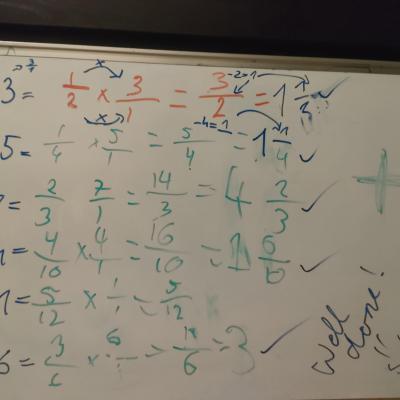 3 = 1/2 × 3/1 = 3/2 -2=1 = 1 1/3 ✓
5 = 1/4 × 5/1 = 5/4 -4=1 = 1 1/4 ✓
= 2/3 7/1 = 14/3 = 4 2/3 ✓
= 4/10 × 4/1 = 16/10 = 1 6/10 ✓
1 = 5/12 × 1/1 = 5/12
6 = 3/6 × 6/ = /6 = 3 ✓
Well
done!